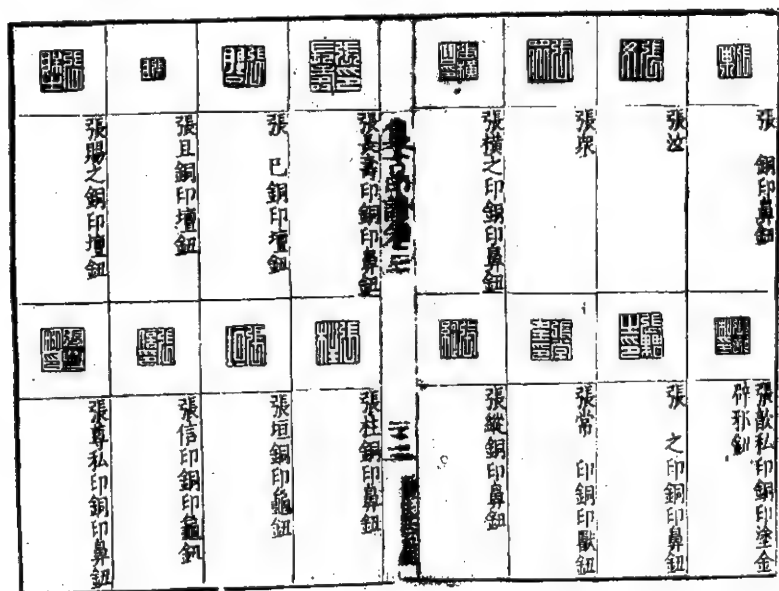 張 銅印鼻鈕
張汝
張衆
張橫之印銅印鼻鈕
張歆私印銅印塗金
辟邪鈕
張 之印銅印鼻鈕
張常 印銅印獸鈕
張縱銅印鼻鈕
集古印譜卷
張長壽印銅印鼻鈕
張 巳銅印壇鈕
張且銅印壇鈕
張賜之銅印壇鈕
張柱銅印鼻鈕
張垣銅印龜鈕
張信印銅印龜鈕
張尊私印銅印鼻鈕